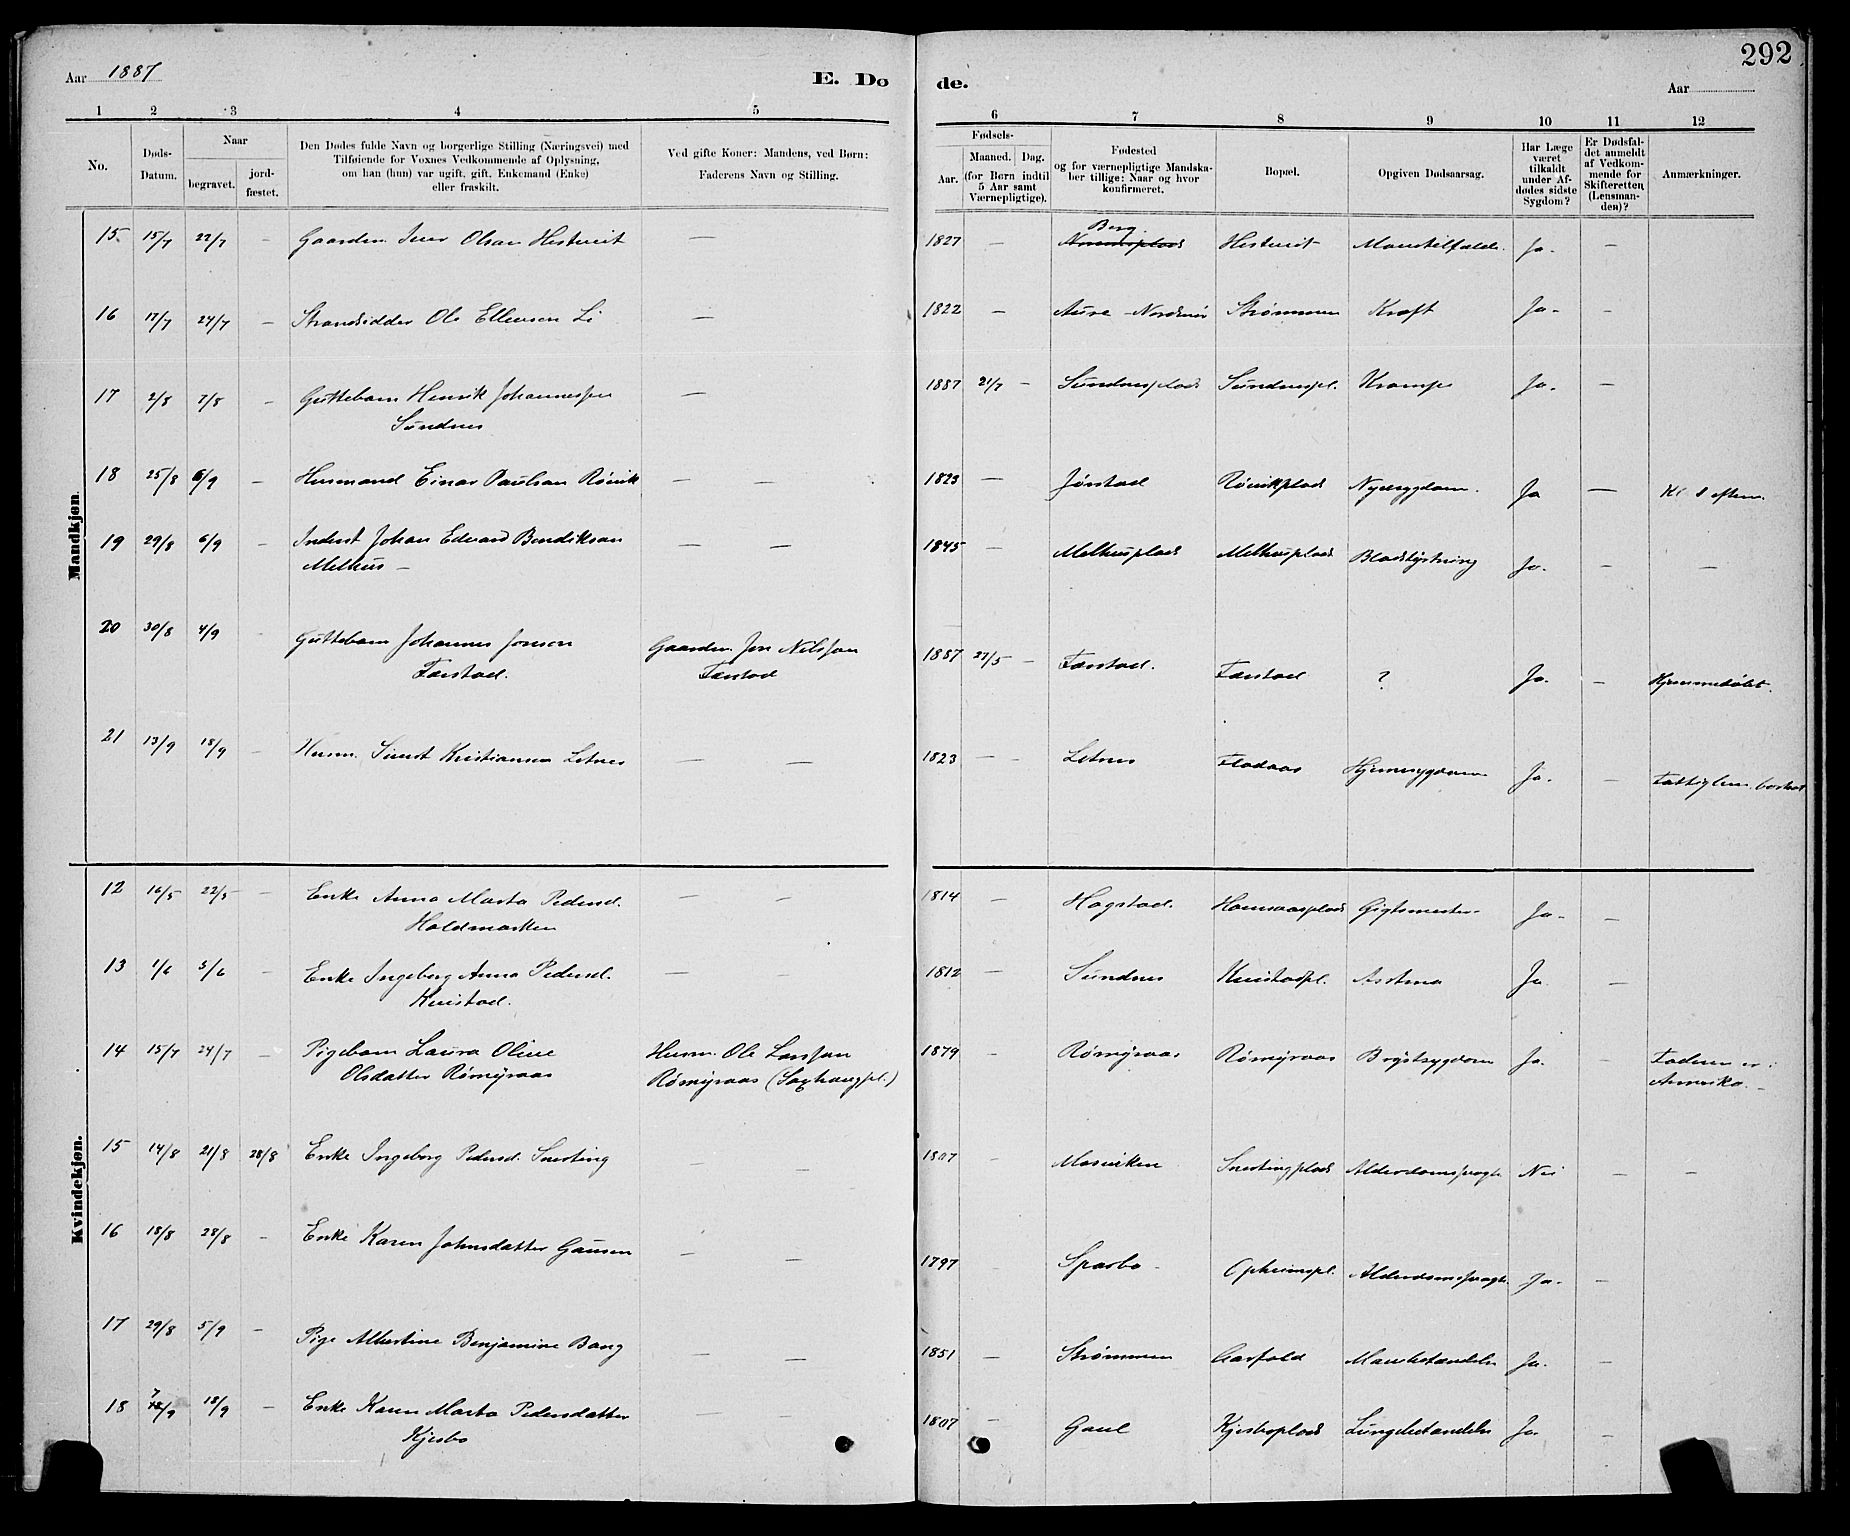 292
Aar 1887
E. Dø
de.
Aar
1 2 3 4 5
6 7 8 9 10 11 12
No.
Døds-
Datum.
Naar
begravet.
jord-
fæstet.
Den Dødes fulde Navn og borgerlige Stilling (Næringsvei) med
Tilføiende for Voxnes Vedkommende af Oplysning,
om han (hun) var ugift, gift, Enkemand (Enke)
eller fraskilt.
Ved gifte Koner: Mandens, ved Børn:
Faderens Navn og Stilling.
Fødsels-
Aar.
Maaned. Dag.
(for Børn indtil
5 Aar samt
Værnepligtige).
Fødested
og for værnepligtige Mandska-
ber tillige: Naar og hvor
konfirmeret.
Bopæl.
Opgiven Dødsaarsag.
Har Læge
været
tilkaldt
under Af-
dødes sidste
Sygdom?
Er Dødsfal-
det anmeldt
af Vedkom-
mende for
Skifteretten
(Lensman-
den)?
Anmærkninger.
Mandkjøn.
15. 15/7 22/7 — Gaardm. Iver Olsen Hestveit — 1827 — Berg Hestveit Mavetilfælde. Ja. —
16 17/7 24/7 — Strandsidder Ole Ellevsen Li — 1822 — Aure Nordmør Strømmen Kræft Ja. —
17 2/8 7/8 — Guttebarn Henrik Johannessen — 1887 21/7 — Sundnesplads Sundnespl. Krampe Ja. —
Sundnes
18 25/8 6/9 — Husmand Einar Paulsen Røvik — — 1823 — Jørstad Røvikplads Nyresygdom. Ja — Kl. 8 eftm.
19 29/8 6/9 — Inderst Johan Edvard Bendiksen — — 1845 — Melhusplads Melhusplads Blodstyrtning Ja. — —
Melhus —
20 30/8 4/9 Guttebarn Johannes Jonsen Gaardm. Jon Nilssen 1887 27/5 — Færstad. Færstad ? Ja. — Hjemmedøbt.
Færstad. Færstad
21 13/9 18/9 — Husm. Sivert Kristiansen Letnes — — 1823 — — Letnes Flodaas Hjernesygdom Ja. —
Kvindekjøn.
12 16/5 22/5 — Enke Anna Marta Pedersd. — — 1814 — Hagstad. Gigtsmerter Ja. —
Holdmarken
13 1/6 5/6 — Enke Ingeborg Anna Pedersd. — — 1812 — Sundnes Kvistadpl. Astma Ja. —
Kvistad.
14 15/7 24/7 — Pigebarn Laura Oline Husm. Ole Larssen 1879 — Rømyraas Rømyraas Brystsygdom Ja. — Faderen er i
Olsdatter Rømyraas Rømyraas (Saxhaugpl.) Amerika. —
15 14/8 21/8 28/8 Enke Ingeborg Pedersd. Snerting — — 1807 — Mosviken Snertingplads Alderdomssvagh. Nei — —
16 18/8 28/8 — Enke Karen Johnsdatter Gausen — — 1797 Sparbo — Opheimspl. Alderdomssvagh. Ja. —
17 29/8 5/9 — Pige Albertine Benjamine Bang — — 1851 — Strømmen Aasfald Mavebetændelse Ja. —
18 7/9 18/9 — Enke Karen Marta Pedersdatter — — 1807 — Gaul Kjesboplads Lungebetændelse Ja. —
Kjesbo